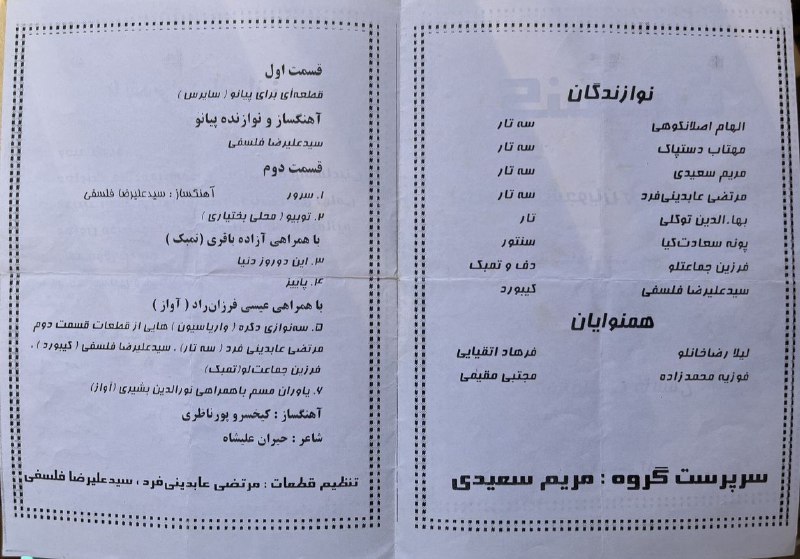 نوازندگان
الهام اصلانکوهی سه تار
مهتاب دستپاک سه تار
مریم سعیدی سه تار
مرتضی عابدینی‌فرد سه تار
بهاءالدین توکلی تار
پونه سعادت‌کیا سنتور
فرزین جماعتلو دف و تمبک
سیدعلیرضا فلسفی کیبورد
همنوایان
لیلا رضاخانلو فرهاد اتقیایی
فوزیه محمدزاده مجتبی مقیمی
سرپرست گروه : مریم سعیدی
قسمت اول
قطعه‌ای برای پیانو ( سایرس )
آهنگساز و نوازنده پیانو
سیدعلیرضا فلسفی
قسمت دوم
۱. سرور آهنگساز : سیدعلیرضا فلسفی
۲. توبیو ( محلی بختیاری )
با همراهی آزاده باقری (تمبک )
۳. این دوروز دنیا
۴. پاییز
با همراهی عیسی فرزان‌راد ( آواز )
۵. سه‌نوازی دگره ( واریاسیون ) هایی از قطعات قسمت دوم
مرتضی عابدینی فرد ( سه تار) ، سیدعلیرضا فلسفی ( کیبورد ) ،
فرزین جماعت‌لو(تمبک)
۶. یاوران مسم باهمراهی نورالدین بشیری (آواز)
آهنگساز : کیخسرو پورناظری
شاعر : حیران علیشاه
تنظیم قطعات : مرتضی عابدینی‌فرد ، سیدعلیرضا فلسفی